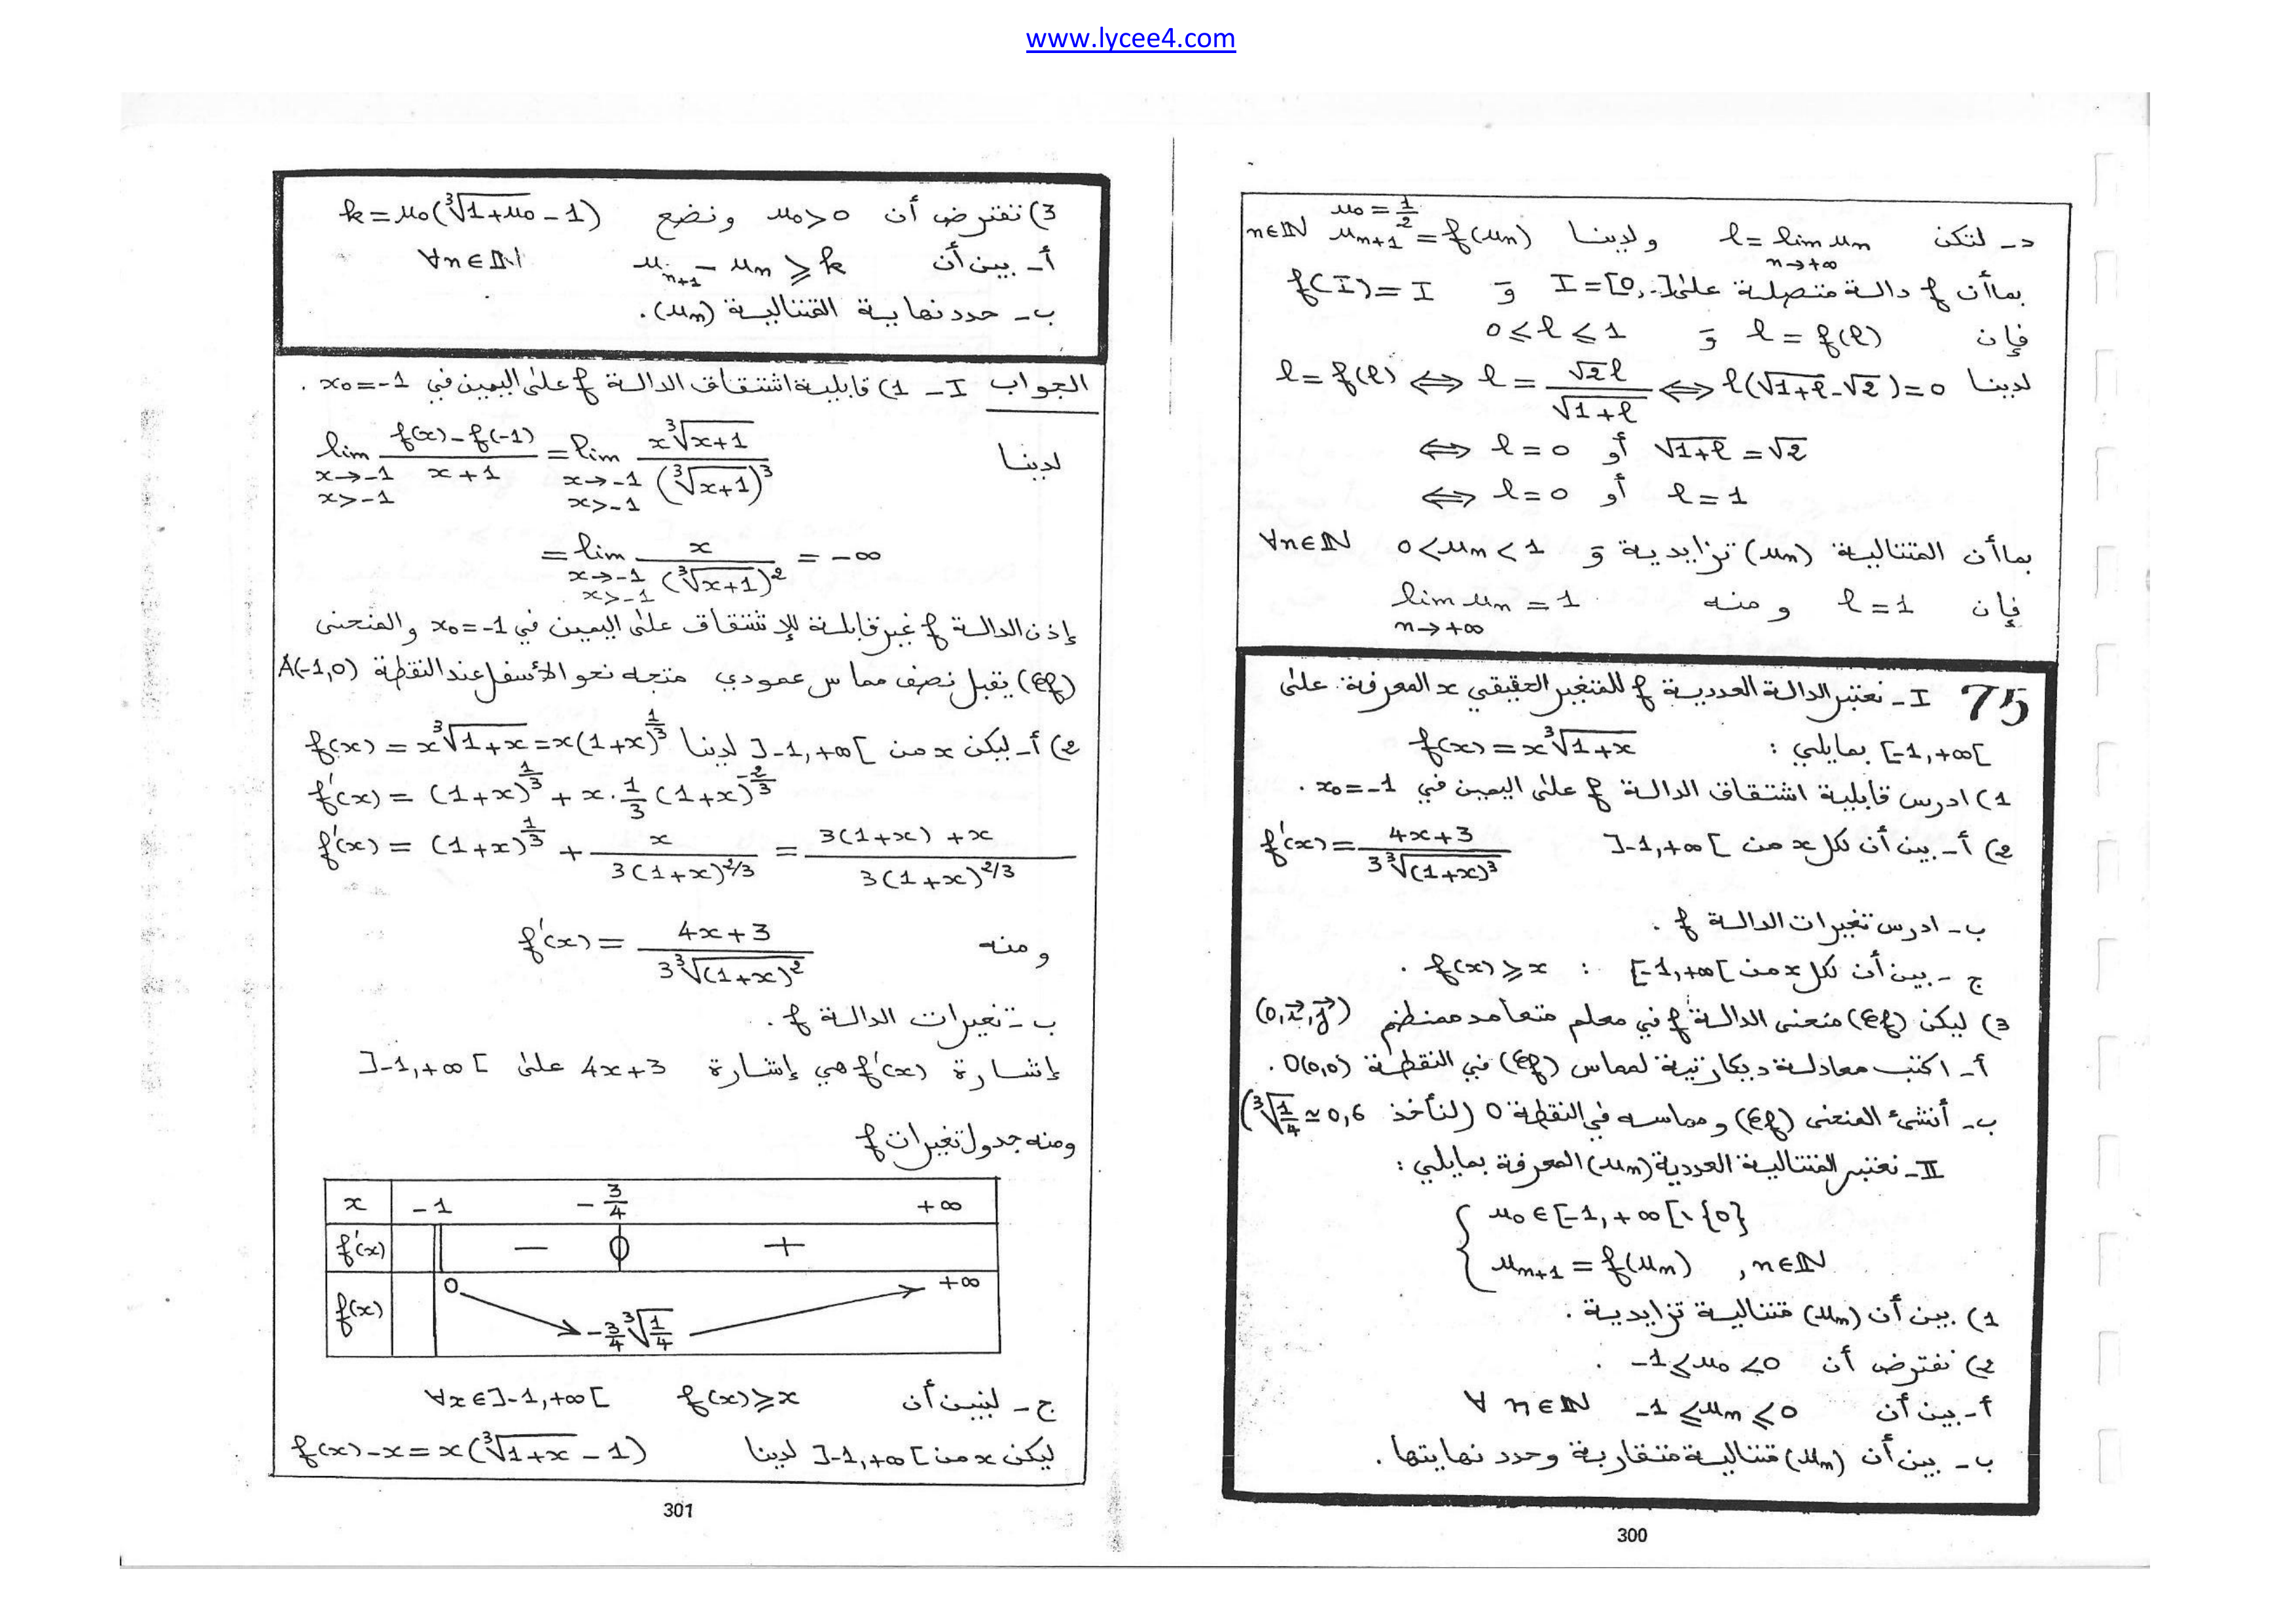 www.lycee4.com
د- لتكن l = lim uₙ n→+∞ ولدينا u₀ = 1/2 uₙ₊₁ = f(uₙ) n∈ℕ
بما أن f دالة متصلة على I = [0, و f(I) = I
فإن l = f(l) و 0 ≤ l ≤ 1
لدينا l = f(l) ⟺ l = √2 l / √(1+l) ⟺ l(√(1+l) - √2) = 0
⟺ l = 0 أو √(1+l) = √2
⟺ l = 0 أو l = 1
بما أن المتتالية (uₙ) تزايدية و 0 < uₙ < 1 ∀n∈ℕ
فإن l = 1 ومنه lim uₙ = 1 n→+∞
75 I - نعتبر الدالة العددية f للمتغير الحقيقي x المعرفة على
[-1,+∞[ بمايلي : f(x) = x ∛(1+x)
1) ادرس قابلية اشتقاق الدالة f على اليمين في x₀ = -1 .
2) أ - بين أن لكل x من ]-1,+∞[ f'(x) = (4x+3) / (3∛(1+x)³)
ب - ادرس تغيرات الدالة f .
ج - بين أن لكل x من [-1,+∞[ : f(x) ≥ x .
3) ليكن (𝒞f) منحنى الدالة f في معلم متعامد ممنظم (O,i⃗,j⃗)
أ - اكتب معادلة ديكارتية لمماس (𝒞f) في النقطة O(0,0) .
ب - أنشئ المنحنى (𝒞f) ومماسه في النقطة O (لنأخذ ∛(1/4) ≃ 0,6)
II - نعتبر المتتالية العددية (uₙ) المعرفة بمايلي :
u₀ ∈ [-1,+∞[ \ {0}
uₙ₊₁ = f(uₙ) , n∈ℕ
1) بين أن (uₙ) متتالية تزايدية .
2) نفترض أن -1 ≤ u₀ < 0 .
أ - بين أن -1 ≤ uₙ ≤ 0 ∀ n∈ℕ
ب - بين أن (uₙ) متتالية متقاربة وحدد نهايتها .
300
3) نفترض أن u₀ > 0 ونضع k = u₀(∛(1+u₀) - 1)
أ - بين أن uₙ₊₁ - uₙ ≥ k ∀n∈ℕ
ب - حدد نهاية المتتالية (uₙ) .
الجواب I - 1) قابلية اشتقاق الدالة f على اليمين في x₀ = -1 .
لدينا lim x→-1 x>-1 (f(x) - f(-1)) / (x+1) = lim x→-1 x>-1 x∛(x+1) / (∛(x+1))³
= lim x→-1 x>-1 x / (∛(x+1))² = -∞
إذن الدالة f غير قابلة للإشتقاق على اليمين في x₀ = -1 والمنحنى
(𝒞f) يقبل نصف مماس عمودي متجه نحو الأسفل عند النقطة A(-1,0)
2) أ - ليكن x من ]-1,+∞[ لدينا f(x) = x∛(1+x) = x(1+x)^(1/3)
f'(x) = (1+x)^(1/3) + x . 1/3 (1+x)^(-2/3)
f'(x) = (1+x)^(1/3) + x / (3(1+x)^(2/3)) = (3(1+x) + x) / (3(1+x)^(2/3))
ومنه f'(x) = (4x+3) / (3∛(1+x)²)
ب - تغيرات الدالة f .
إشارة f'(x) هي إشارة 4x+3 على ]-1,+∞[
ومنه جدول تغيرات f
x -1 -3/4 +∞
f'(x) - 0 +
f(x) 0 -3/4 ∛(1/4) +∞
ج - لنبين أن f(x) ≥ x ∀x∈]-1,+∞[
ليكن x من ]-1,+∞[ لدينا f(x) - x = x(∛(1+x) - 1)
301